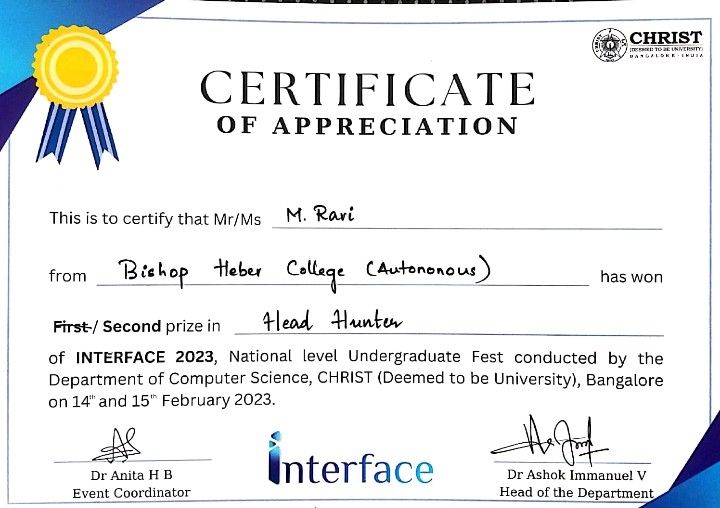 CHRIST
(DEEMED TO BE UNIVERSITY)
BANGALORE · INDIA
CERTIFICATE
OF APPRECIATION
This is to certify that Mr/Ms M. Ravi
from Bishop Heber College (Autononous) has won
First / Second prize in Head Hunter
of INTERFACE 2023, National level Undergraduate Fest conducted by the
Department of Computer Science, CHRIST (Deemed to be University), Bangalore
on 14th and 15th February 2023.
interface
Dr Anita H B
Event Coordinator
Dr Ashok Immanuel V
Head of the Department